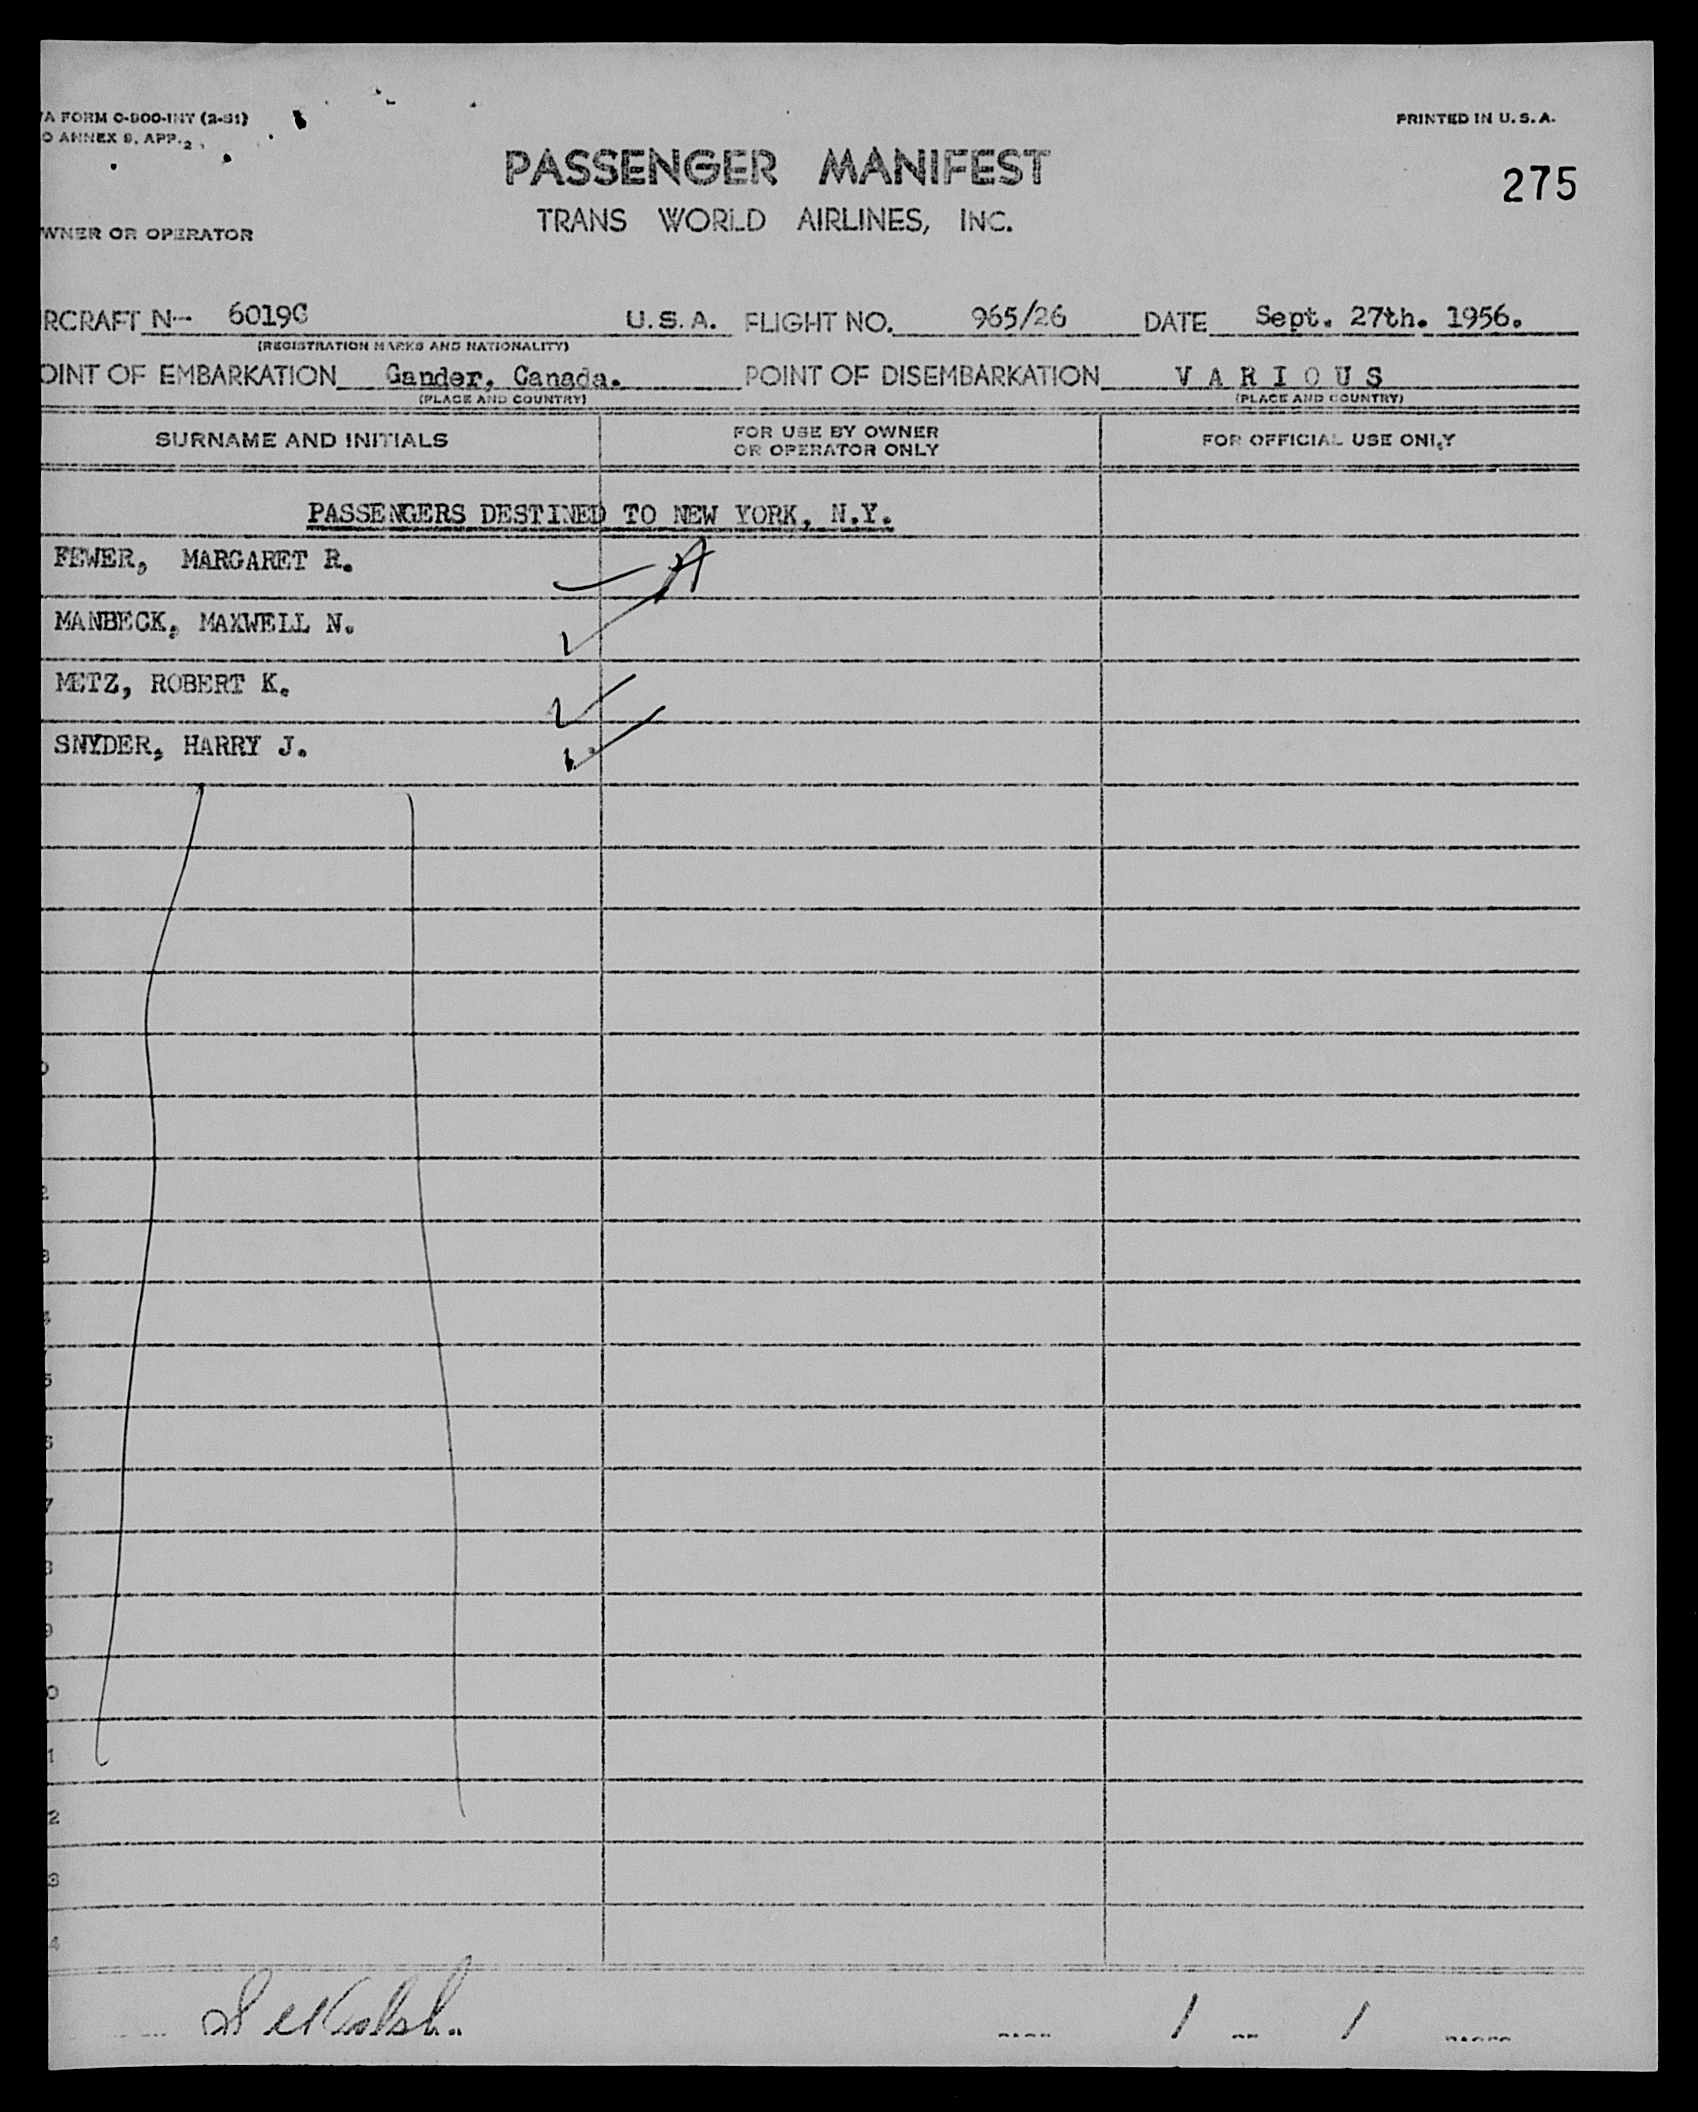 A FORM O-800-INT (2-51)
PRINTED IN U.S.A.
O ANNEX 9, APP. 2
PASSENGER MANIFEST
275
TRANS WORLD AIRLINES, INC.
WNER OR OPERATOR
RCRAFT N- 6019C U.S.A. FLIGHT NO. 965/26 DATE Sept. 27th. 1956.
(REGISTRATION MARKS AND NATIONALITY)
OINT OF EMBARKATION Gander, Canada. POINT OF DISEMBARKATION V A R I O U S
(PLACE AND COUNTRY) (PLACE AND COUNTRY)
SURNAME AND INITIALS FOR USE BY OWNER OR OPERATOR ONLY FOR OFFICIAL USE ONLY
PASSENGERS DESTINED TO NEW YORK, N.Y.
FEWER, MARGARET R. A
MANBECK, MAXWELL N.
METZ, ROBERT K.
SNYDER, HARRY J.
0
2
3
4
5
6
7
8
9
0
1
2
3
4
1 1